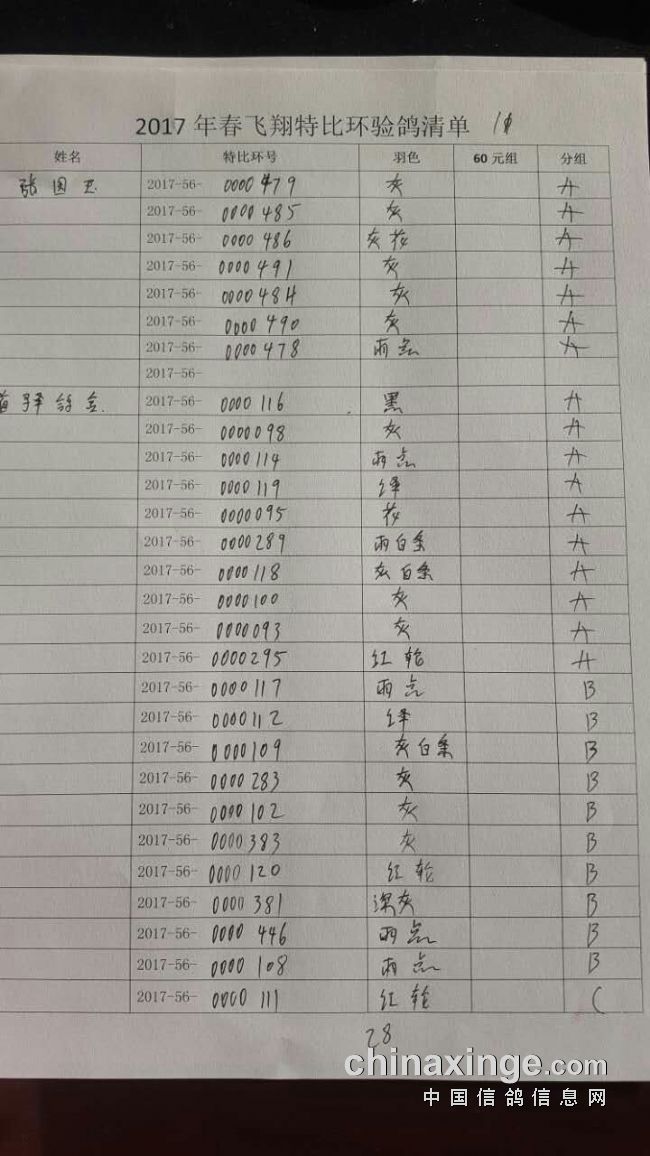 2017 年春飞翔特比环验鸽清单
姓名 特比环号 羽色 60 元组 分组
张国 2017-56- 0000479 灰 A
2017-56- 0000485 灰 A
2017-56- 0000486 灰花 A
2017-56- 0000491 灰 A
2017-56- 0000484 灰 A
2017-56- 0000490 灰 A
2017-56- 0000478 雨点 A
2017-56-
2017-56- 0000116 黑 A
2017-56- 0000098 灰 A
2017-56- 0000114 雨点 A
2017-56- 0000119 绛 A
2017-56- 0000095 花 A
2017-56- 0000289 雨白条 A
2017-56- 0000118 灰白条 A
2017-56- 0000100 灰 A
2017-56- 0000093 灰 A
2017-56- 0000295 红轮 A
2017-56- 0000117 雨点 B
2017-56- 0000112 绛 B
2017-56- 0000109 灰白条 B
2017-56- 0000283 灰 B
2017-56- 0000102 灰 B
2017-56- 0000383 灰 B
2017-56- 0000120 红轮 B
2017-56- 0000381 深灰 B
2017-56- 0000446 雨点 B
2017-56- 0000108 雨点 B
2017-56- 0000111 红轮 C
28
chinaxinge.com
中国信鸽信息网